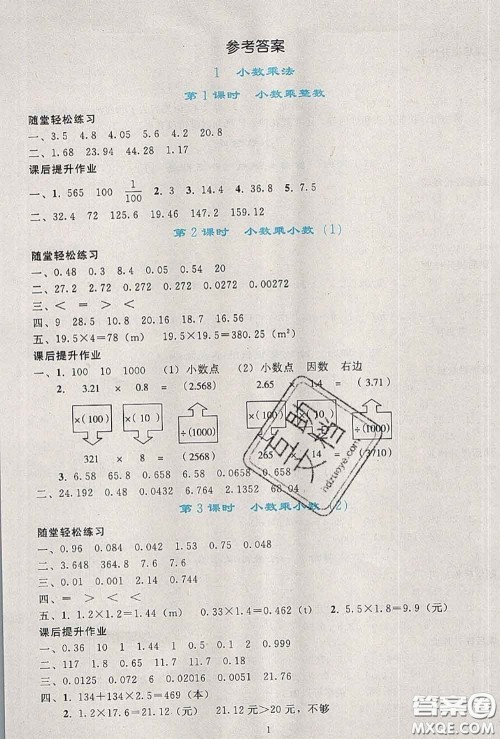 参考答案
1 小数乘法
第1课时 小数乘整数
随堂轻松练习
一、3.5 4.8 4.05 5.6 4.2 20.8
二、1.68 23.94 44.28 1.17
课后提升作业
一、1. 565 100 1/100 2. 3 3. 14.4 4. 36.4 5. 7.5
二、32.4 72 125.6 19.46 147.2 159.12
第2课时 小数乘小数(1)
随堂轻松练习
一、0.48 0.3 8.4 0.54 0.05
二、27.2 2.72 0.272 0.272 0.0272 0.00272
三、＜ ＝ ＞ ＜
四、9 28.5 10.8 0.12
五、19.5×4=78（m） 19.5×19.5=380.25（m²）
课后提升作业
一、1. 100 10 1000 (1) 小数点 (2) 小数点 因数 右边
2. 3.21 × 0.8 =（2.568） 2.65 1.4 =（3.71）
×(100) ×(10) ÷(1000) ×(10) ÷(1000)
321 × 8 （2568） 265 （3710）
3. 6.58 0.658 0.0658 65.8
二、24.192 0.48 0.0384 68.04 0.
第3课时 小数乘小数(2)
随堂轻松练习
一、0.96 0.084 1.02 1.53 0.75 0.048
二、3.648 364.8 7.6 3.6
三、
四、＝ ＞ ＜ ＞
五、1. 1.2×1.2=1.44（m） 0.33×1.4=0.462（t） 2. 5.5×1.8=9.9（元）
课后提升作业
一、0.36 10 1 1.44 0.1 0.2 0.999
二、117 1.8 0.65 31.2
三、
四、1. 134+134×2.5=469（本）
2. 17.6×1.2=21.12（元） 21.12元＞20元，不够
1
助
文档
ndzuoye.com
答案圈
MXQE.COM